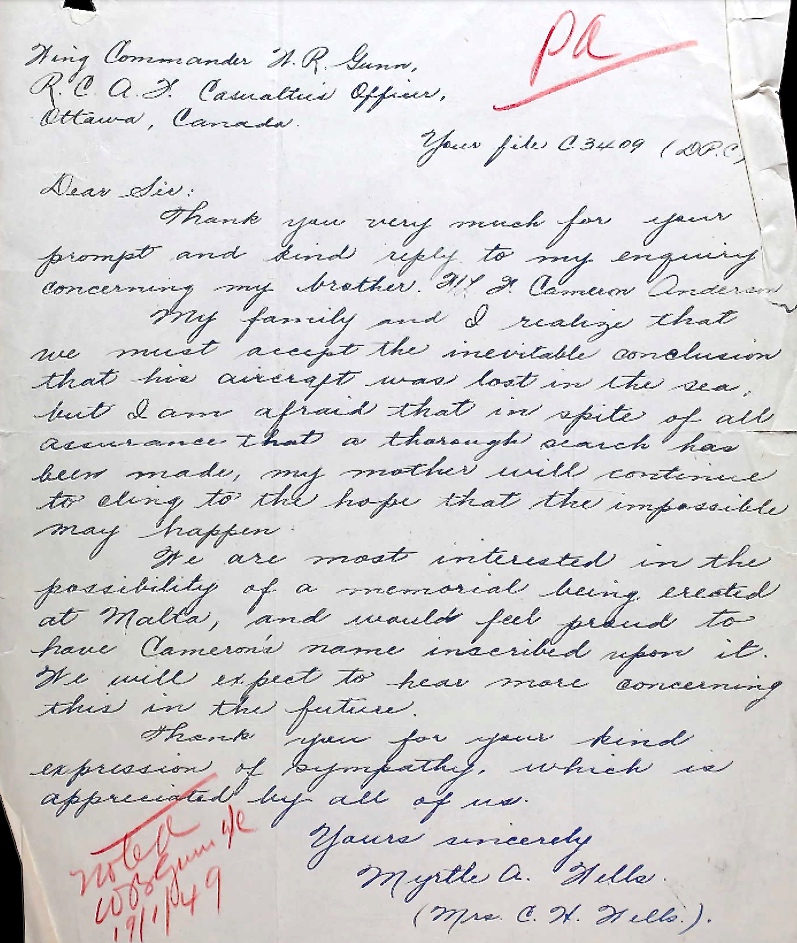 PA
Wing Commander W. R. Gunn,
R. C. A. F. Casualties Officer,
Ottawa, Canada.
Your file C3409 (DPC)
Dear Sir:
Thank you very much for your
prompt and kind reply to my enquiry
concerning my brother. F/L F. Cameron Anderson
My family and I realize that
we must accept the inevitable conclusion
that his aircraft was lost in the sea,
but I am afraid that in spite of all
assurance that a thorough search has
been made, my mother will continue
to cling to the hope that the impossible
may happen.
We are most interested in the
possibility of a memorial being erected
at Malta, and would feel proud to
have Cameron's name inscribed upon it.
We will expect to hear more concerning
this in the future.
Thank you for your kind
expression of sympathy, which is
appreciated by all of us.
Yours sincerely
Myrtle A. Wells.
(Mrs. C. H. Wells.).
Noted
Gunn W/C
19/1/49